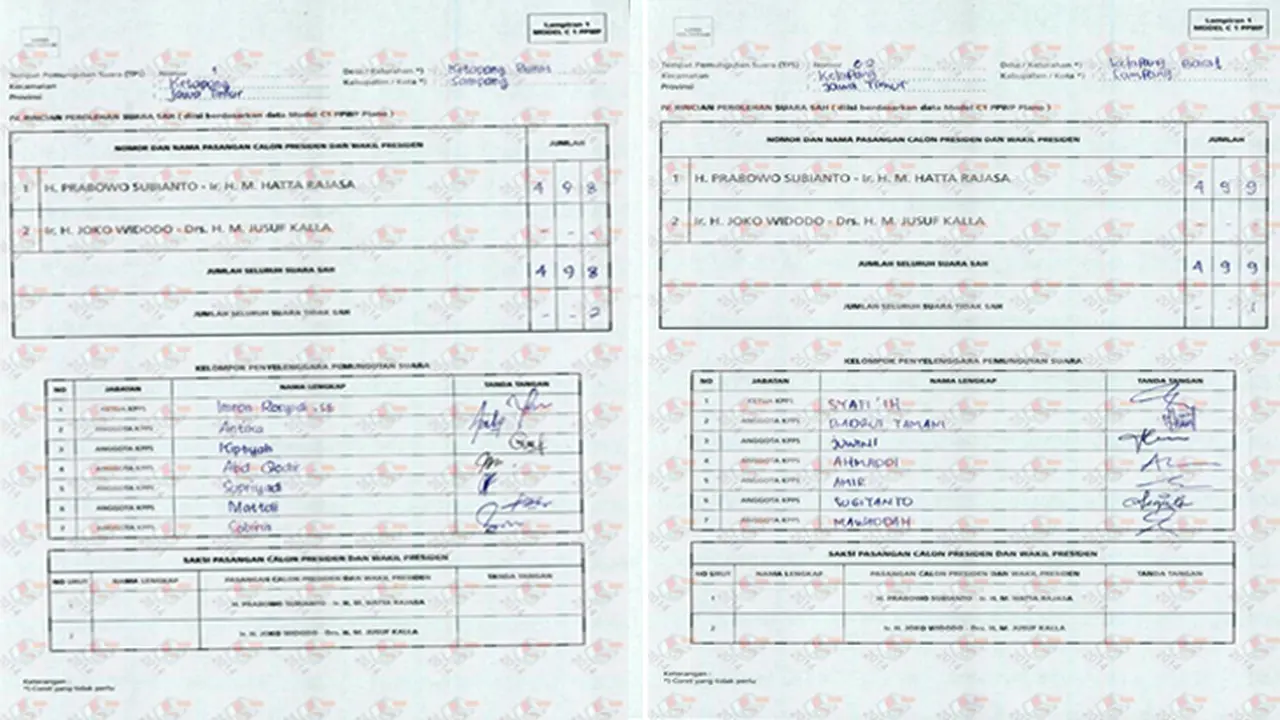 Lampiran 1
MODEL C 1 PPWP
Tempat Pemungutan Suara (TPS) : Nomor 1
Desa / Kelurahan *) : Ketapang Barat
Kecamatan : Ketapang
Kabupaten / Kota *) : Sampang
Provinsi : Jawa Timur
IV. RINCIAN PEROLEHAN SUARA SAH ( diisi berdasarkan data Model C1 PPWP Plano )
NOMOR DAN NAMA PASANGAN CALON PRESIDEN DAN WAKIL PRESIDEN JUMLAH
1 H. PRABOWO SUBIANTO - Ir. H. M. HATTA RAJASA 4 9 8
2 Ir. H. JOKO WIDODO - Drs. H. M. JUSUF KALLA - - -
JUMLAH SELURUH SUARA SAH 4 9 8
JUMLAH SELURUH SUARA TIDAK SAH - - 2
KELOMPOK PENYELENGGARA PEMUNGUTAN SUARA
NO JABATAN NAMA LENGKAP TANDA TANGAN
1 KETUA KPPS
2 ANGGOTA KPPS
3 ANGGOTA KPPS Kiptiyah
4 ANGGOTA KPPS Abd Qodir
5 ANGGOTA KPPS Supriyadi
6 ANGGOTA KPPS Mattoli
7 ANGGOTA KPPS
SAKSI PASANGAN CALON PRESIDEN DAN WAKIL PRESIDEN
NO URUT NAMA LENGKAP PASANGAN CALON PRESIDEN DAN WAKIL PRESIDEN TANDA TANGAN
1 H. PRABOWO SUBIANTO - Ir. H. M. HATTA RAJASA
2 Ir. H. JOKO WIDODO - Drs. H. M. JUSUF KALLA
Keterangan :
*) Coret yang tidak perlu
Lampiran 1
MODEL C 1 PPWP
Tempat Pemungutan Suara (TPS) : Nomor
Desa / Kelurahan *) : Ketapang Barat
Kecamatan : Ketapang
Kabupaten / Kota *) : Sampang
Provinsi : Jawa Timur
IV. RINCIAN PEROLEHAN SUARA SAH ( diisi berdasarkan data Model C1 PPWP Plano )
NOMOR DAN NAMA PASANGAN CALON PRESIDEN DAN WAKIL PRESIDEN JUMLAH
1 H. PRABOWO SUBIANTO - Ir. H. M. HATTA RAJASA 4 9 9
2 Ir. H. JOKO WIDODO - Drs. H. M. JUSUF KALLA - - -
JUMLAH SELURUH SUARA SAH 4 9 9
JUMLAH SELURUH SUARA TIDAK SAH - - 1
KELOMPOK PENYELENGGARA PEMUNGUTAN SUARA
NO JABATAN NAMA LENGKAP TANDA TANGAN
1 KETUA KPPS SYAFI'IH
2 ANGGOTA KPPS BADRUT TAMANI
3 ANGGOTA KPPS JUWAINI
4 ANGGOTA KPPS AHMADDI
5 ANGGOTA KPPS AMIR
6 ANGGOTA KPPS SUGIYANTO
7 ANGGOTA KPPS MAWADDAH
SAKSI PASANGAN CALON PRESIDEN DAN WAKIL PRESIDEN
NO URUT NAMA LENGKAP PASANGAN CALON PRESIDEN DAN WAKIL PRESIDEN TANDA TANGAN
1 H. PRABOWO SUBIANTO - Ir. H. M. HATTA RAJASA
2 Ir. H. JOKO WIDODO - Drs. H. M. JUSUF KALLA
Keterangan :
*) Coret yang tidak perlu